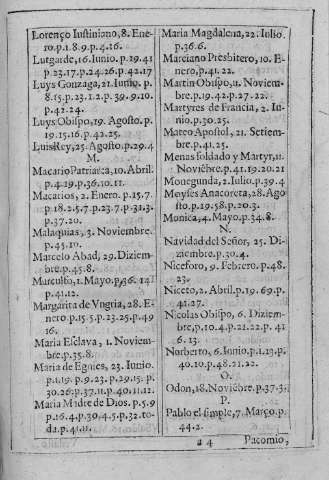 Lorenço Iustiniano, 8. Ene-
ro.p.1.8.9.p.4.16.
Lutgarde, 16. Iunio. p. 19. 41
p.23.17.p.24.26.p.42.17
Luys Gonzaga, 21. Iunio. p.
8.15.p.23.1.2.p. 39. 9.10.
p.42.24.
Luys Obispo, 19. Agosto. p.
19.15.16.p.42.25.
Luis Rey, 25. Agosto.p.29.4
M.
Macario Patriarca, 10. Abril.
p.4.19.p.36.10.11.
Macarios, 2. Enero. p.15.7.
p.18.2.5.7.p.23.7.p.31.3.
p.37.20.
Malaquias, 3. Noviembre.
p.45.10.
Marcelo Abad, 29. Diziem-
bre.p.45.8.
Marculfo, 1. Mayo. p.36. 14
p.41.12.
Margarita de Vngria, 28. E-
nero. p.15.5. p.23.25. p.49
16.
Maria Esclava, 1. Noviem-
bre.p.35.8.
Maria de Egnies, 23. Iunio.
p.1.19. p.9.23. p.29.15. p.
30.26.p.37.11.p.40.11.12.
Maria Madre de Dios. p.5.9
p.16.4.p.30.4.5.p.32.to-
da.p.41.11.
Maria Magdalena, 22. Iulio.
p.36.6.
Marciano Presbitero, 10. E-
nero, p.41.22.
Martin Obispo, 11. Noviem-
bre.p.19.42.p.27.22.
Martyres de Francia, 2. Iu-
nio.p.30.25.
Mateo Apostol, 21. Setiem-
bre.p.41.25.
Menas soldado y Martyr, 11.
Noviẽbre.p.41.19.20.21
Monegunda, 2. Iulio.p.39.4
Moyses Anacoreta, 28. Ago
sto.p.19.58.p.20.3.
Monica, 4. Mayo.p.34.8.
N.
Navidad del Señor, 25. Di-
ziembre.p.30.4.
Niceforo, 9. Febrero. p.48.
23.
Niceto, 2. Abril.p.19.69.p.
41.27.
Nicolas Obispo, 6. Diziem-
bre, p.10.4.p.21.22.p. 41
6.13.
Norberto, 6. Iunio.p.1.13.p.
40.10.p.48.21.22.
O.
Odon, 18. Noviẽbre. p.37.3.
P.
Pablo el simple, 7. Março. p.
44.2.
a 4 Pacomio,